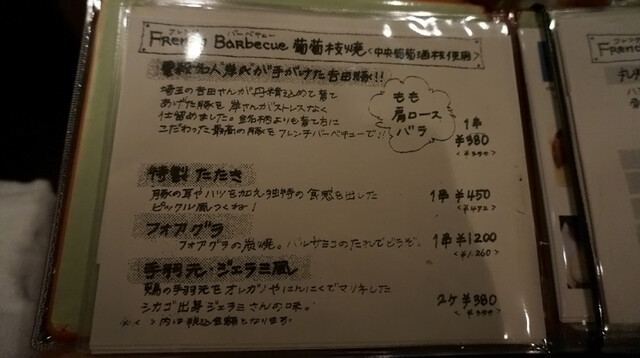 フレンチ バーベキュー
French Barbecue 葡萄枝焼<中央葡萄酒枝使用>
が手がけた吉田豚!!
埼玉の吉田さんが丹精込めて育て
あげた豚を 岸さんがストレスなく
仕留めました。銘柄よりも育て方に
こだわった最高の豚をフレンチバーベキューで!!
もも
肩ロース
バラ
1串
¥380
<¥399>
特製 たたき
豚の耳やハツを加え独特の食感を出した
ピックル風つくね!
1串 ¥450
<¥472>
フォアグラ
フォアグラの炭焼。バルサミコのたれでどうぞ。
1串 ¥1200
<¥1,260>
手羽元・ジェラミ風
鶏の手羽元をオレガノやにんにくでマリネした
シカゴ出身ジェラミさんの味。
2ケ ¥380
<¥399>
※< >内は税込金額となります。